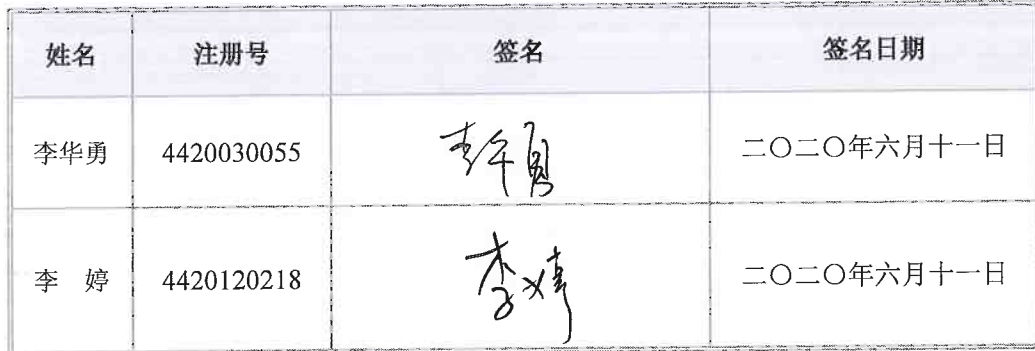 姓名 注册号 签名 签名日期
李华勇 4420030055 二〇二〇年六月十一日
李 婷 4420120218 李婷 二〇二〇年六月十一日